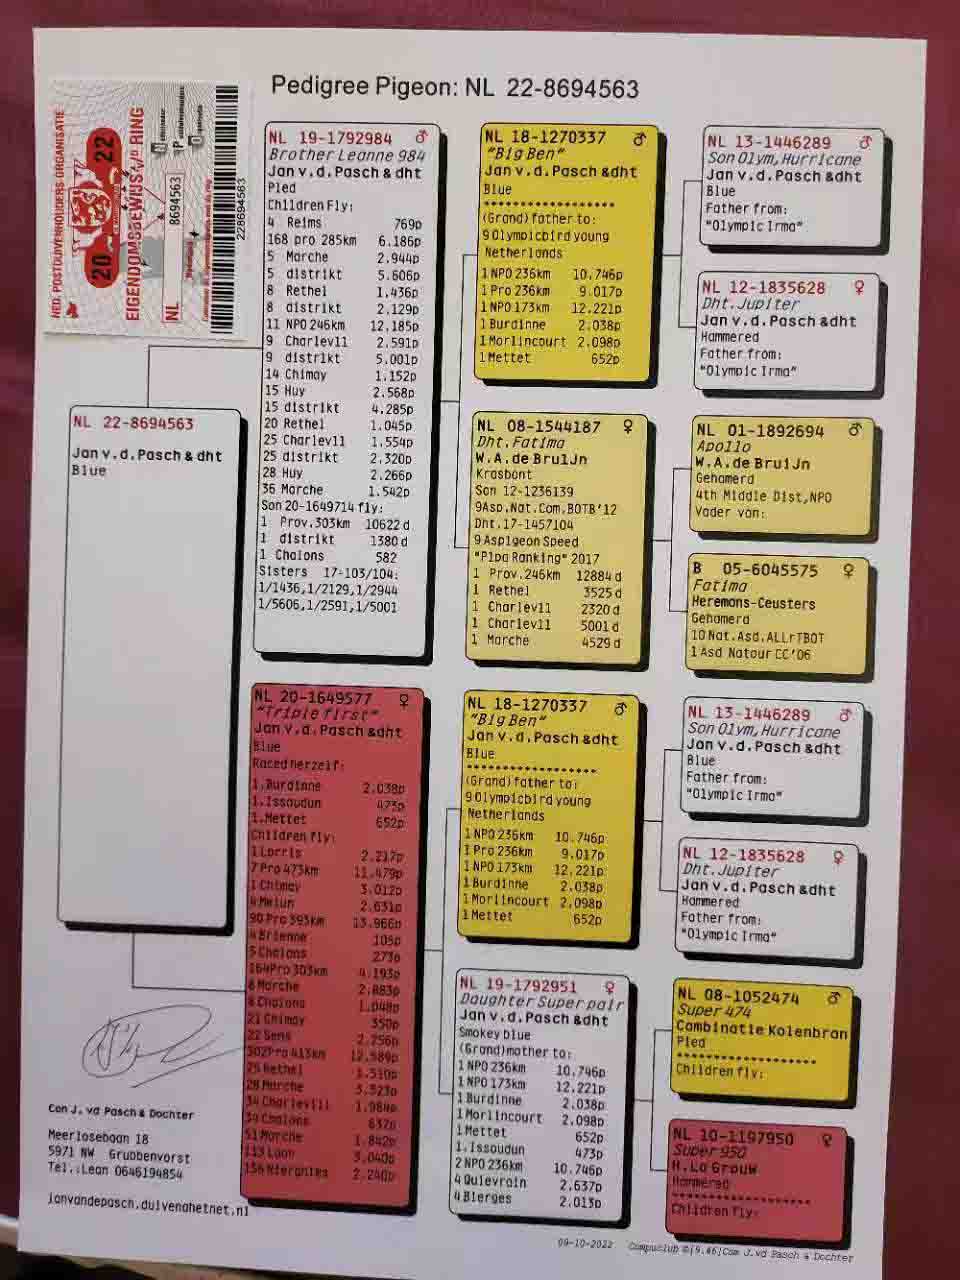 Pedigree Pigeon: NL 22-8694563
NED. POSTDUIVENHOUDERS ORGANISATIE
2022
EIGENDOMSBEWIJS v/d RING
NL
8694563
228694563
NL 22-8694563
Jan v.d.Pasch & dht
Blue
NL 19-1792984 ♂
Brother Leanne 984
Jan v.d.Pasch & dht
Pled
Children Fly:
4 Reims 769p
168 pro 285km 6.186p
5 Marche 2.944p
5 distrikt 5.606p
8 Rethel 1.436p
8 distrikt 2.129p
11 NPO 246km 12.185p
9 Charlevll 2.591p
9 distrikt 5.001p
14 Chimay 1.152p
15 Huy 2.568p
15 distrikt 4.285p
20 Rethel 1.045p
25 Charlevll 1.554p
25 distrikt 2.320p
28 Huy 2.266p
36 Marche 1.542p
Son 20-1649714 fly:
1 Prov.303km 10622d
1 distrikt 1380d
1 Chalons 582
Sisters 17-103/104:
1/1436,1/2129,1/2944
1/5606,1/2591,1/5001
NL 20-1649577 ♀
"Triple first"
Jan v.d.Pasch &dht
Blue
Raced herzelf:
1.Burdinne 2.038p
1.Issoudun 473p
1.Mettet 652p
Children fly:
1 Lorris 2.217p
7 Pro 473km 11.479p
1 Chimay 3.012p
4 Melun 2.631p
90 Pro 393km 13.966p
4 Brienne 105p
5 Chalons 273p
164Pro 303km 4.193p
8 Marche 2.883p
8 Chalons 1.048p
21 Chimay 350p
22 Sens 2.256p
302Pro 413km 12.589p
25 Rethel 1.510p
28 Marche 3.323p
34 Charlevill 1.984p
39 Chalons 632p
51 Marche 1.842p
113 Laon 3.040p
136 Niergnies 2.240p
NL 18-1270337 ♂
"Big Ben"
Jan v.d.Pasch &dht
Blue
******************
(Grand)father to:
9 Olympicbird young
Netherlands
1 NPO 236km 10.746p
1 Pro 236km 9.017p
1 NPO 173km 12.221p
1 Burdinne 2.038p
1 Morlincourt 2.098p
1 Mettet 652p
NL 08-1544187 ♀
Dht.Fatima
W.A.de BruiJn
Krasbont
Son 12-1236139
9Asp.Nat.Com.BOTB'12
Dht.17-1457104
9 Aspigeon Speed
"Pipa Ranking" 2017
1 Prov.246km 12884d
1 Rethel 3525d
1 Charlevll 2320d
1 Charlevll 5001d
1 Marche 4529d
NL 18-1270337 ♂
"Big Ben"
Jan v.d.Pasch &dht
Blue
******************
(Grand)father to:
9 Olympicbird young
Netherlands
1 NPO 236km 10.746p
1 Pro 236km 9.017p
1 NPO 173km 12.221p
1 Burdinne 2.038p
1 Morlincourt 2.098p
1 Mettet 652p
NL 19-1792951 ♀
Daughter Superpair
Jan v.d.Pasch &dht
Smokey blue
(Grand)mother to:
1 NPO 236km 10.746p
1 NPO 173km 12.221p
1 Burdinne 2.038p
1 Morlincourt 2.098p
1 Mettet 652p
1.Issoudun 473p
2 NPO 236km 10.746p
4 Quievrain 2.637p
4 Bierges 2.013p
NL 13-1446289 ♂
Son Olym,Hurricane
Jan v.d.Pasch &dht
Blue
Father from:
"Olympic Irma"
NL 12-1835628 ♀
Dht.Jupiter
Jan v.d.Pasch &dht
Hammered
Father from:
"Olympic Irma"
NL 01-1892694 ♂
Apollo
W.A.de BruiJn
Gehamerd
4th Middle Dist,NPO
Vader van:
B 05-6045575 ♀
Fatima
Heremans-Ceusters
Gehamerd
10 Nat.Asd.ALLrTBOT
1 Asd Natour CC'06
NL 13-1446289 ♂
Son Olym,Hurricane
Jan v.d.Pasch &dht
Blue
Father from:
"Olympic Irma"
NL 12-1835628 ♀
Dht.Jupiter
Jan v.d.Pasch &dht
Hammered
Father from:
"Olympic Irma"
NL 08-1052474 ♂
Super 474
Combinatie Kolenbran
Pled
******************
Children fly:
NL 10-1197950 ♀
Super 950
H.La Grouw
Hammered
******************
Children fly:
Con J. vd Pasch & Dochter
Meerlosebaan 18
5971 NW Grubbenvorst
Tel.:Lean 0646194854
janvandepasch.duivenahetnet.nl
09-10-2022 Compuclub ©[9.46]Com J.vd Pasch & Dochter